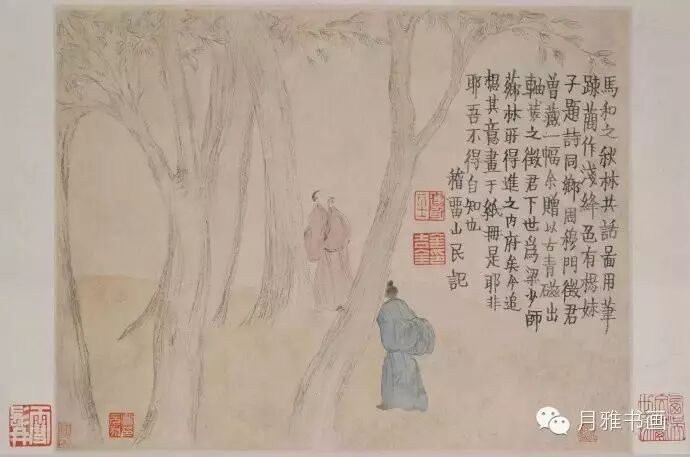 馬和之秋林共話啚用筆
踈蕳作淺絳色有楊妹
子題詩同鄉周穆門徵君
曾藏一幅余贈以古青磁出
軸裝之徵君下世為梁少師
薌林所得進之内府矣今追
想其意畫于紙冊是耶非
耶吾不得自知也
稽畱山民記
月雅书画